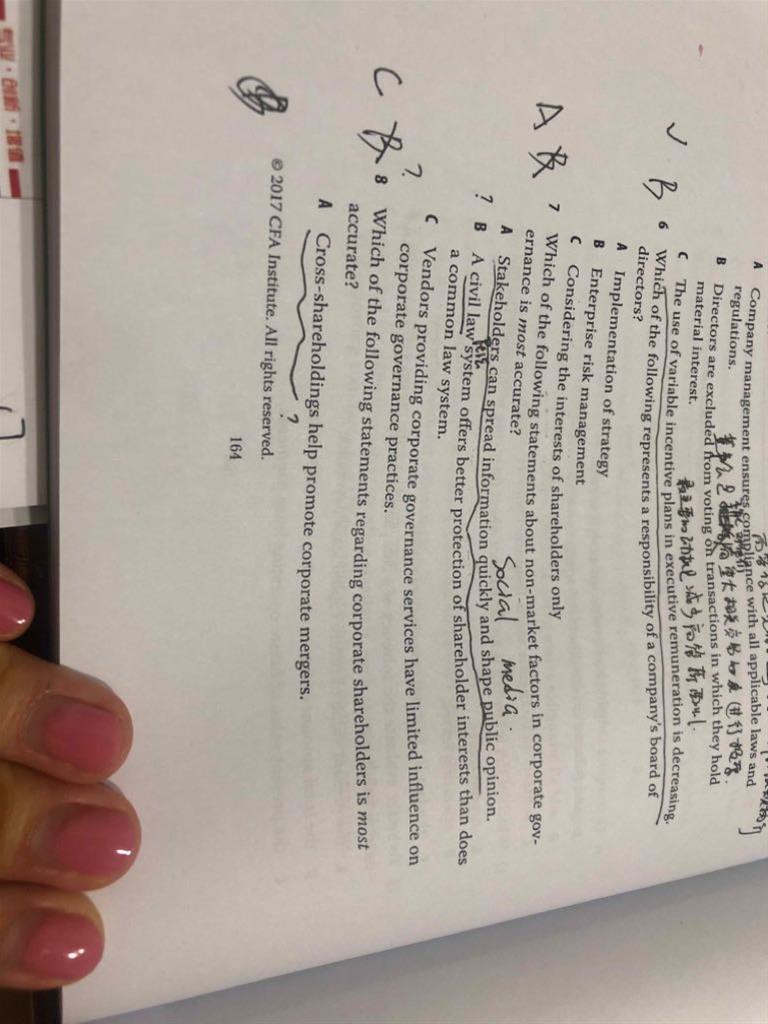 A Company management ensures compliance with all applicable laws and
regulations.
B Directors are excluded from voting on transactions in which they hold
material interest.
C The use of variable incentive plans in executive remuneration is decreasing.
✓ B 6 Which of the following represents a responsibility of a company's board of
directors?
A Implementation of strategy
B Enterprise risk management
C Considering the interests of shareholders only
A B 7 Which of the following statements about non-market factors in corporate gov-
ernance is most accurate?
Social media.
A Stakeholders can spread information quickly and shape public opinion.
? B A civil law system offers better protection of shareholder interests than does
a common law system.
C Vendors providing corporate governance services have limited influence on
corporate governance practices.
C B ? 8 Which of the following statements regarding corporate shareholders is most
accurate?
A Cross-shareholdings help promote corporate mergers.
?
© 2017 CFA Institute. All rights reserved.
164
专业·创新·增值